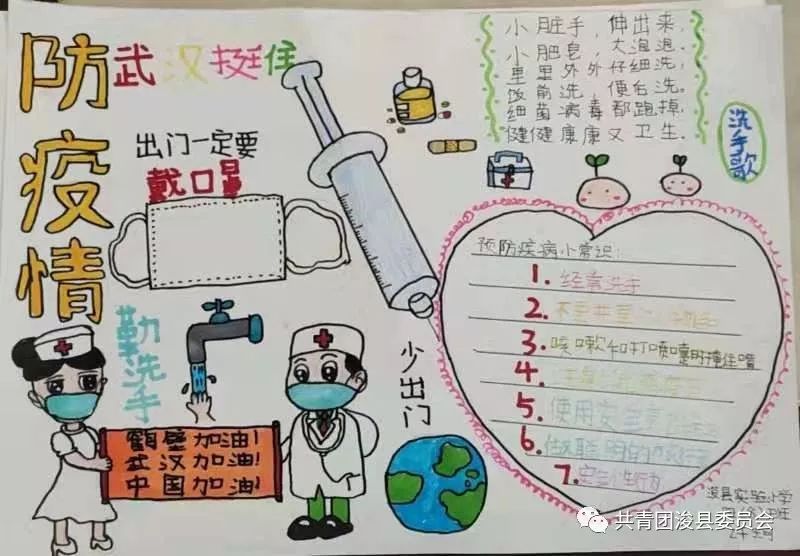 防疫情
武汉挺住
出门一定要
戴口罩
勤洗手
鹤壁加油!
武汉加油!
中国加油!
少出门
小脏手,伸出来,
小肥皂,大泡泡。
里里外外仔细洗,
饭前洗,便后洗。
细菌病毒都跑掉,
健健康康又卫生。
洗手歌
预防疾病小常识:
1.经常洗手
2.
3.咳嗽和打喷嚏时捂住嘴
4.
5.使用安全
6.做聪明的旅行
7.安全性行为
浚县实验小学
共青团浚县委员会